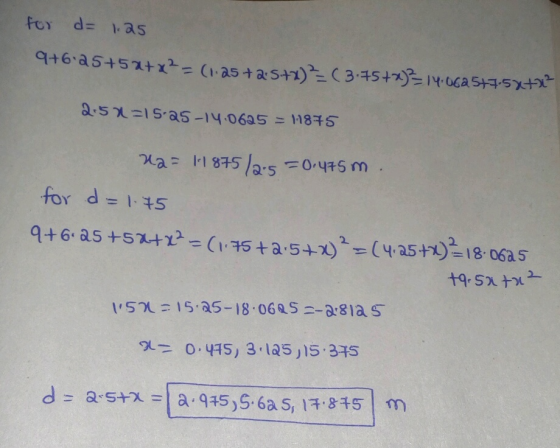 for d= 1.25
9+6.25+5x+x² = (1.25+2.5+x)² = (3.75+x)² = 14.0625+7.5x+x²
2.5x = 15.25-14.0625 = 1.1875
x₂ = 1.1875/2.5 = 0.475 m.
for d = 1.75
9+6.25+5x+x² = (1.75+2.5+x)² = (4.25+x)² = 18.0625
+9.5x+x²
1.5x = 15.25-18.0625 = -2.8125
x = 0.475, 3.125, 15.375
d = 2.5+x = 2.975, 5.625, 17.875 m